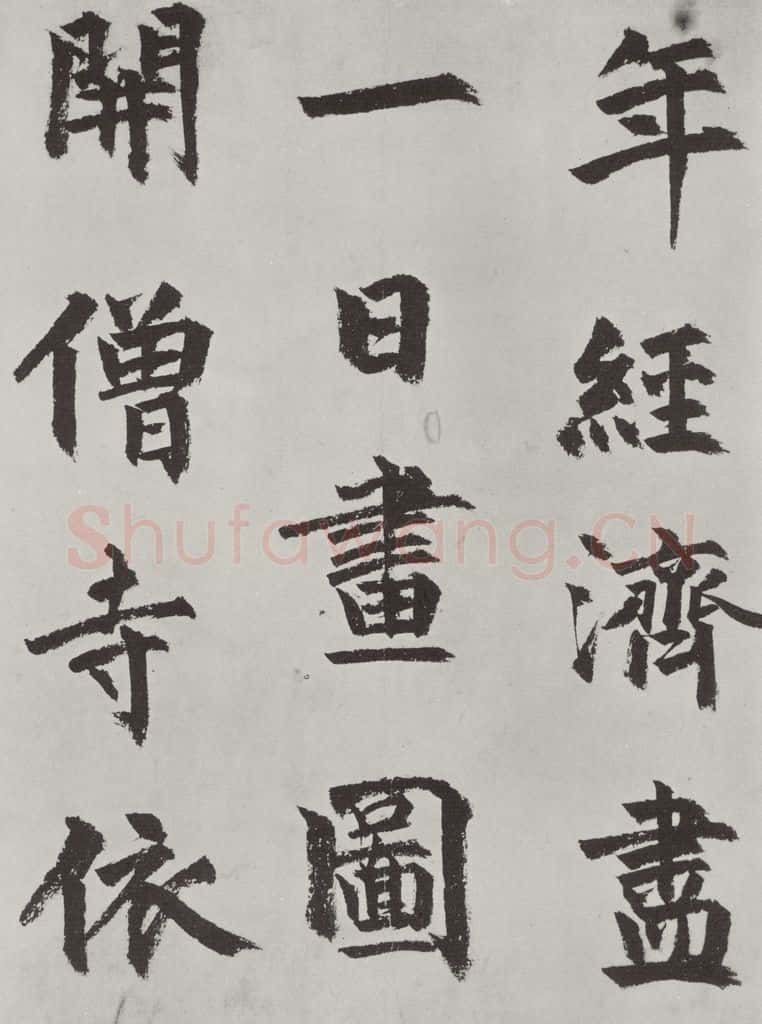 年經濟盡
一日畫圖
開僧寺依
Shufawang.CN